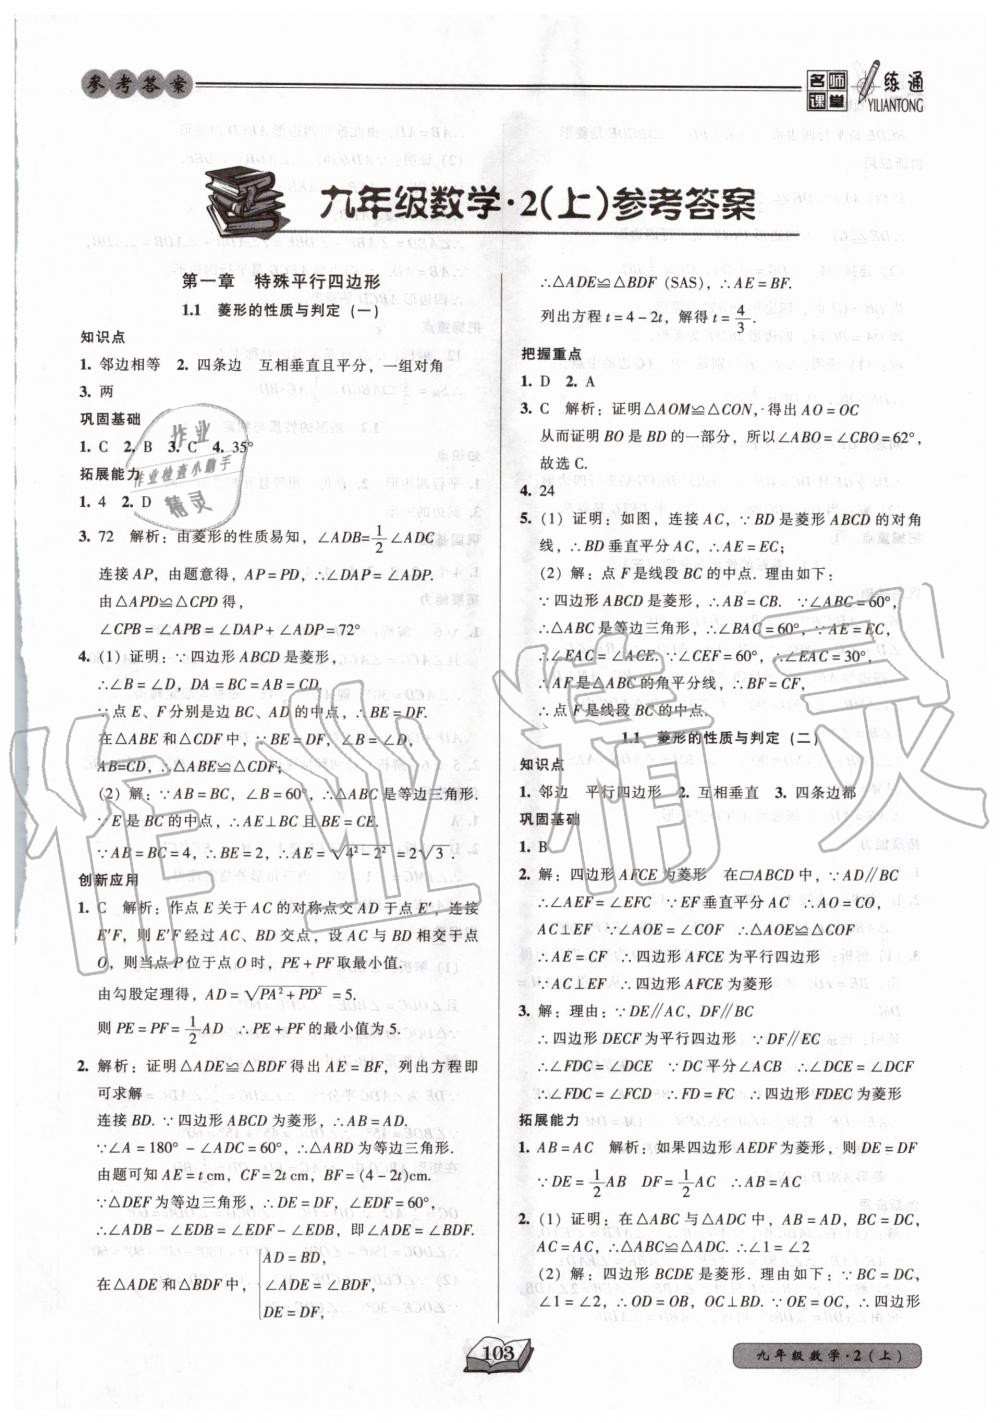 参考答案
名师课堂 一练通
YILIANTONG
九年级数学·2(上)参考答案
第一章 特殊平行四边形
1.1 菱形的性质与判定(一)
知识点
1. 邻边相等 2. 四条边 互相垂直且平分,一组对角
3. 两
巩固基础
1. C 2. B 3. C 4. 35°
拓展能力
1. 4 2. D
3. 72 解析:由菱形的性质易知,∠ADB=1/2∠ADC
连接AP,由题意得,AP=PD,∴∠DAP=∠ADP.
由△APD≌△CPD得,
∠CPB=∠APB=∠DAP+∠ADP=72°
4. (1)证明:∵四边形ABCD是菱形,
∴∠B=∠D,DA=BC=AB=CD,
∵点E、F分别是边BC、AD的中点,∴BE=DF.
在△ABE和△CDF中,∵BE=DF,∠B=∠D,
AB=CD,∴△ABE≌△CDF;
(2)解:∵AB=BC,∠B=60°,∴△ABC是等边三角形.
∵E是BC的中点,∴AE⊥BC且BE=CE.
∵AB=BC=4,∴BE=2,∴AE=√(4²-2²)=2√3.
创新应用
1. C 解析:作点E关于AC的对称点交AD于点E′,连接
E′F,则E′F经过AC、BD交点,设AC与BD相交于点
O,则当点P位于点O时,PE+PF取最小值.
由勾股定理得,AD=√(PA²+PD²)=5.
则PE=PF=1/2AD ∴PE+PF的最小值为5.
2. 解析:证明△ADE≌△BDF得出AE=BF,列出方程即
可求解
连接BD.∵四边形ABCD为菱形,∴AB=AD.
∵∠A=180°-∠ADC=60°,∴△ABD为等边三角形.
由题可知AE=t cm,CF=2t cm,BF=(4-2t)cm.
∵△DEF为等边三角形,∴DE=DF,∠EDF=60°.
∴∠ADB-∠EDB=∠EDF-∠EDB,即∠ADE=∠BDF.
AD=BD,
在△ADE和△BDF中,{∠ADE=∠BDF,
DE=DF,
∴△ADE≌△BDF(SAS),∴AE=BF.
列出方程t=4-2t,解得t=4/3.
把握重点
1. D 2. A
3. C 解析:证明△AOM≌△CON,得出AO=OC
从而证明BO是BD的一部分,所以∠ABO=∠CBO=62°,
故选C.
4. 24
5. (1)证明:如图,连接AC,∵BD是菱形ABCD的对角
线,∴BD垂直平分AC,∴AE=EC;
(2)解:点F是线段BC的中点.理由如下:
∵四边形ABCD是菱形,∴AB=CB.∵∠ABC=60°,
∴△ABC是等边三角形,∴∠BAC=60°,∵AE=EC,
∴∠EAC=∠ACE.∵∠CEF=60°,∴∠EAC=30°,
∴AF是△ABC的角平分线,∴BF=CF,
∴点F是线段BC的中点.
1.1 菱形的性质与判定(二)
知识点
1. 邻边 平行四边形 2. 互相垂直 3. 四条边都
巩固基础
1. B
2. 解:四边形AFCE为菱形 在▱ABCD中,∵AD∥BC
∴∠AEF=∠EFC ∵EF垂直平分AC ∴AO=CO,
AC⊥EF ∵∠AOE=∠COF ∴△AOE≌△COF
∴AE=CF ∴四边形AFCE为平行四边形
∵AC⊥EF ∴四边形AFCE为菱形
3. 解:理由:∵DE∥AC,DF∥BC
∴四边形DECF为平行四边形 ∵DF∥EC
∴∠FDC=∠DCE ∵DC平分∠ACB ∴∠DCE=∠DCF
∴∠FDC=∠FCD ∴FD=FC ∴四边形FDEC为菱形
拓展能力
1. AB=AC 解析:如果四边形AEDF为菱形,则DE=DF
∵DE=1/2AB DF=1/2AC ∴AB=AC
2. (1)证明:在△ABC与△ADC中,AB=AD,BC=DC,
AC=AC,∴△ABC≌△ADC.∴∠1=∠2
(2)解:四边形BCDE是菱形.理由如下:∵BC=DC,
∠1=∠2,∴OD=OB,OC⊥BD.∵OE=OC,∴四边形
103
九年级数学·2(上)
作业
作业检查小助手
精灵
作业精灵